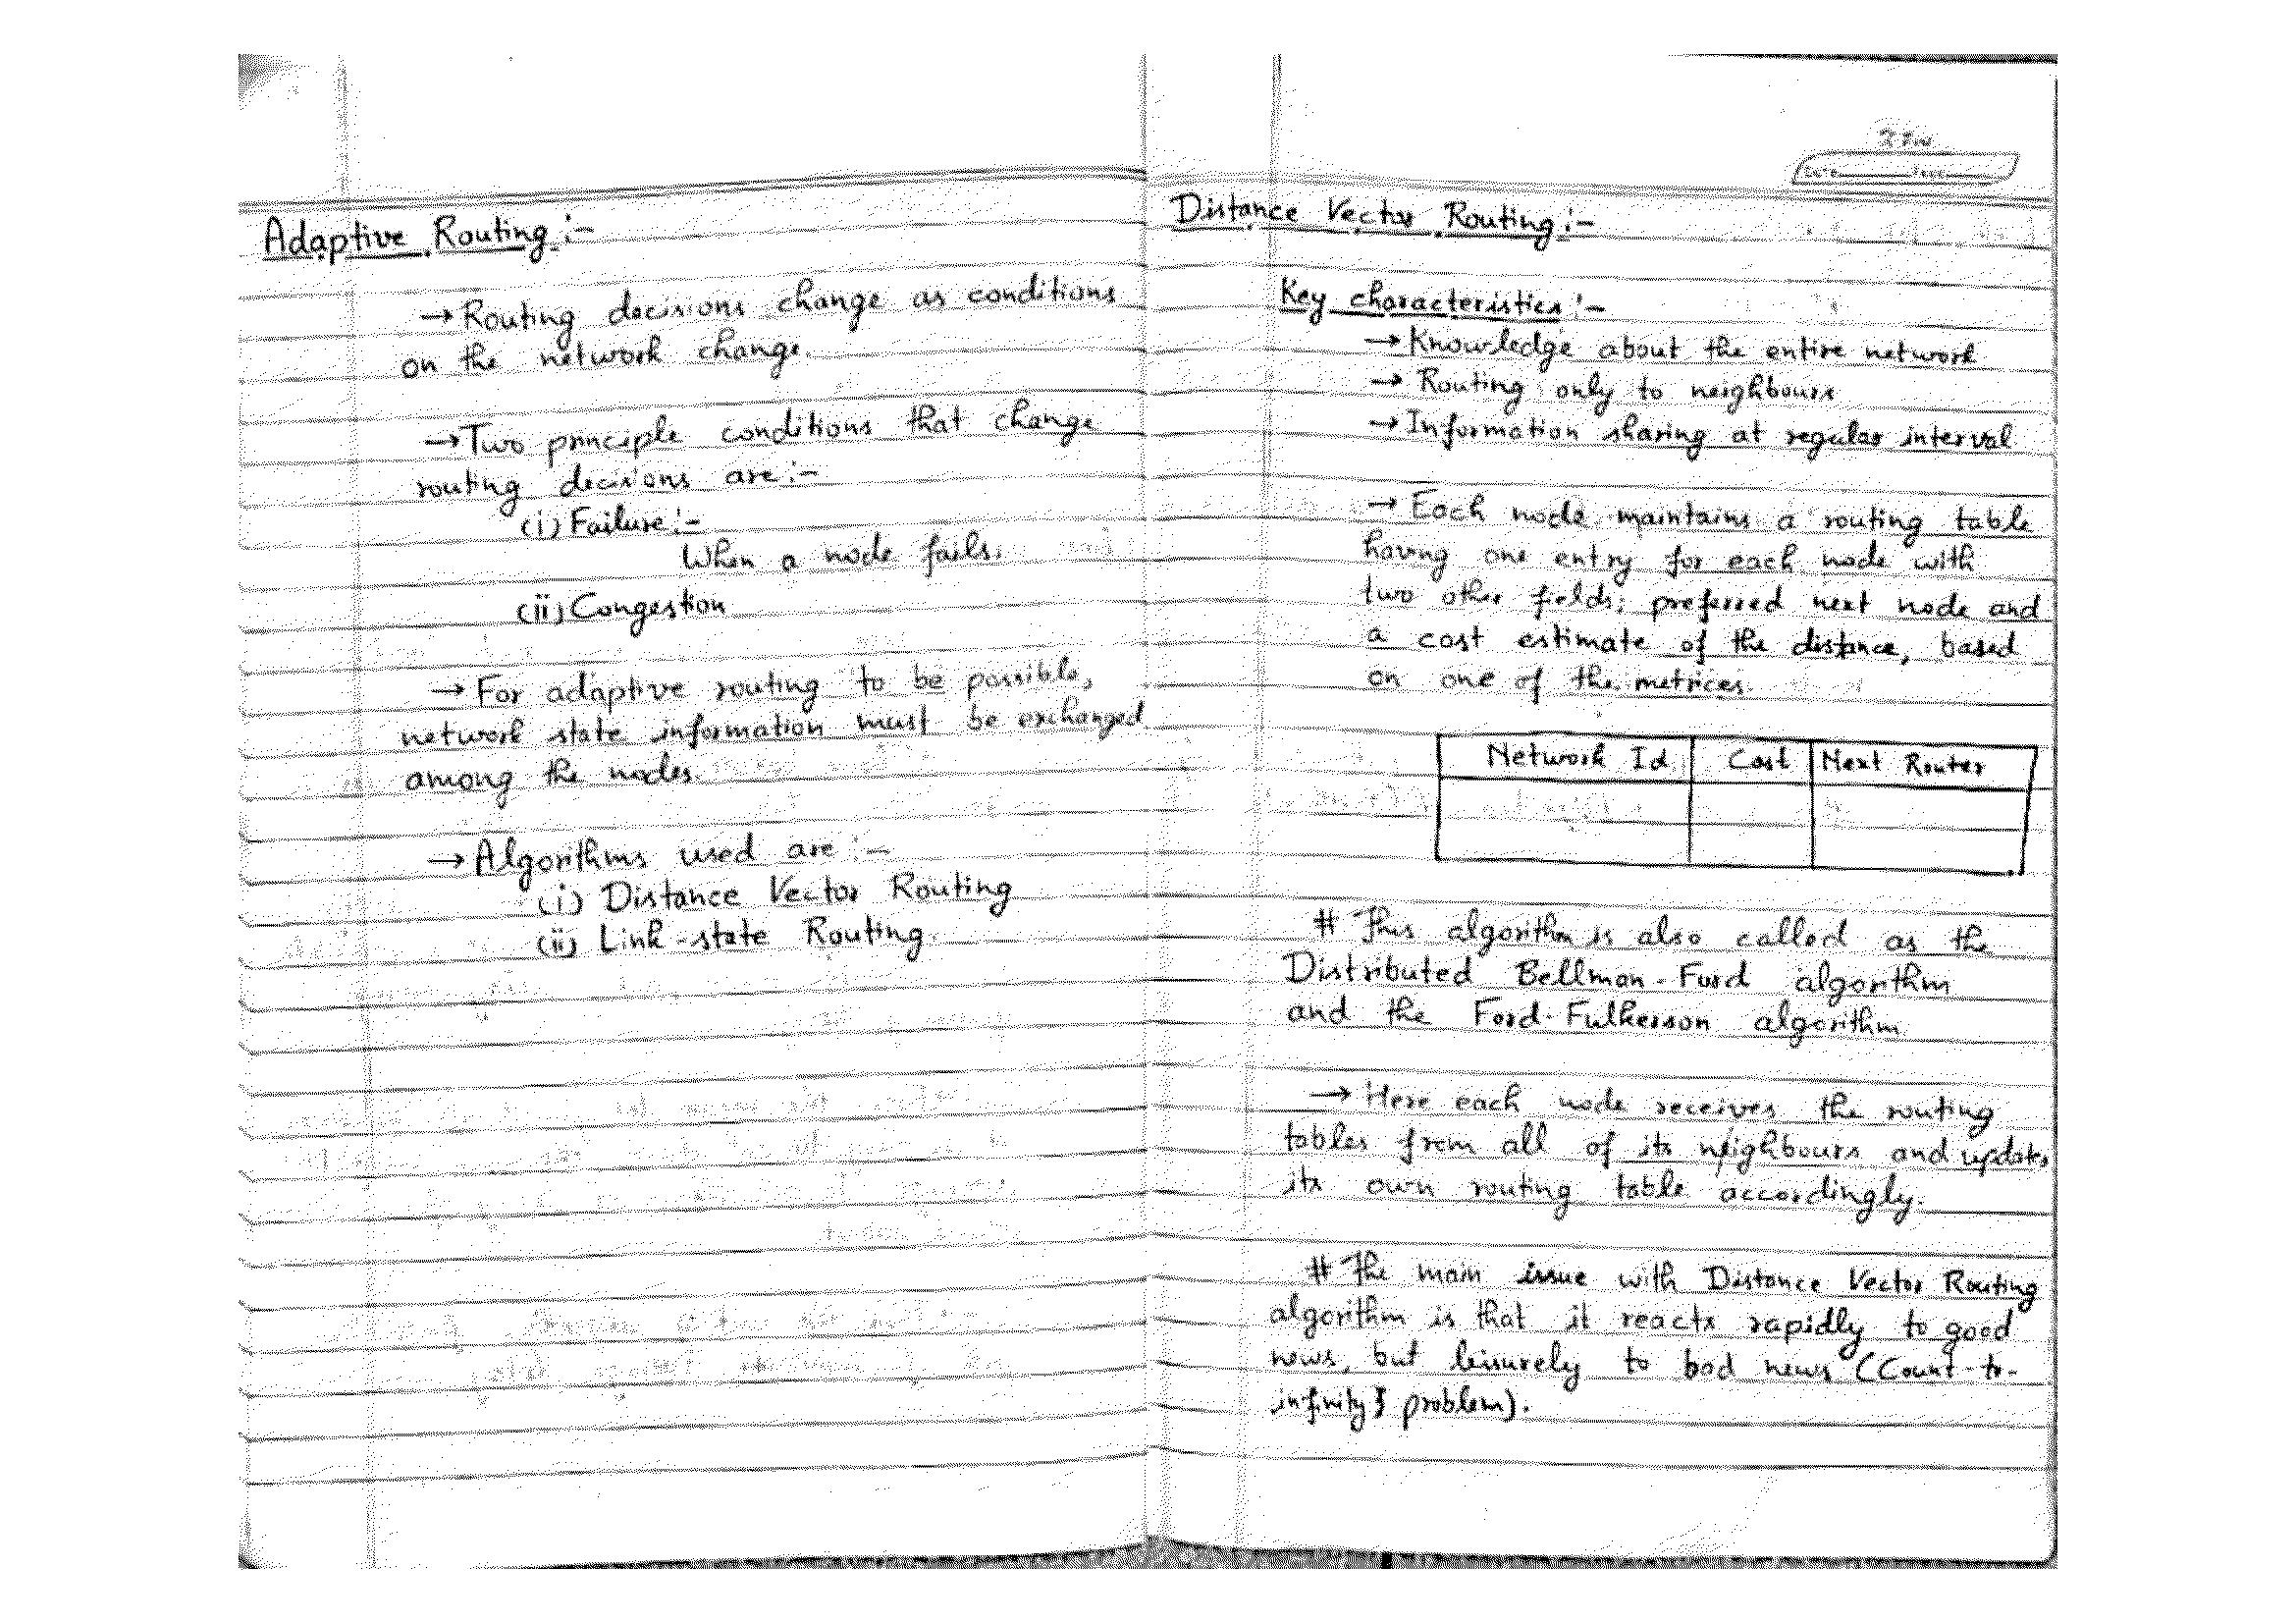 Adaptive Routing :-
→ Routing decisions change as conditions
on the network change.
→ Two principle conditions that change
routing decisions are :-
(i) Failure :-
When a node fails.
(ii) Congestion
→ For adaptive routing to be possible,
network state information must be exchanged
among the nodes.
→ Algorithms used are :-
(i) Distance Vector Routing
(ii) Link-state Routing.
Date Page
Distance Vector Routing :-
Key characteristics :-
→ Knowledge about the entire network
→ Routing only to neighbours
→ Information sharing at regular interval
→ Each node maintains a routing table
having one entry for each node with
two other fields; preferred next node and
a cost estimate of the distance, based
on one of the metrices.
Network Id Cost Next Router
# This algorithm is also called as the
Distributed Bellman-Ford algorithm
and the Ford-Fulkerson algorithm.
→ Here each node receives the routing
tables from all of its neighbours and updates
its own routing table accordingly.
# The main issue with Distance Vector Routing
algorithm is that it reacts rapidly to good
news, but leisurely to bad news (Count-to-
infinity problem).